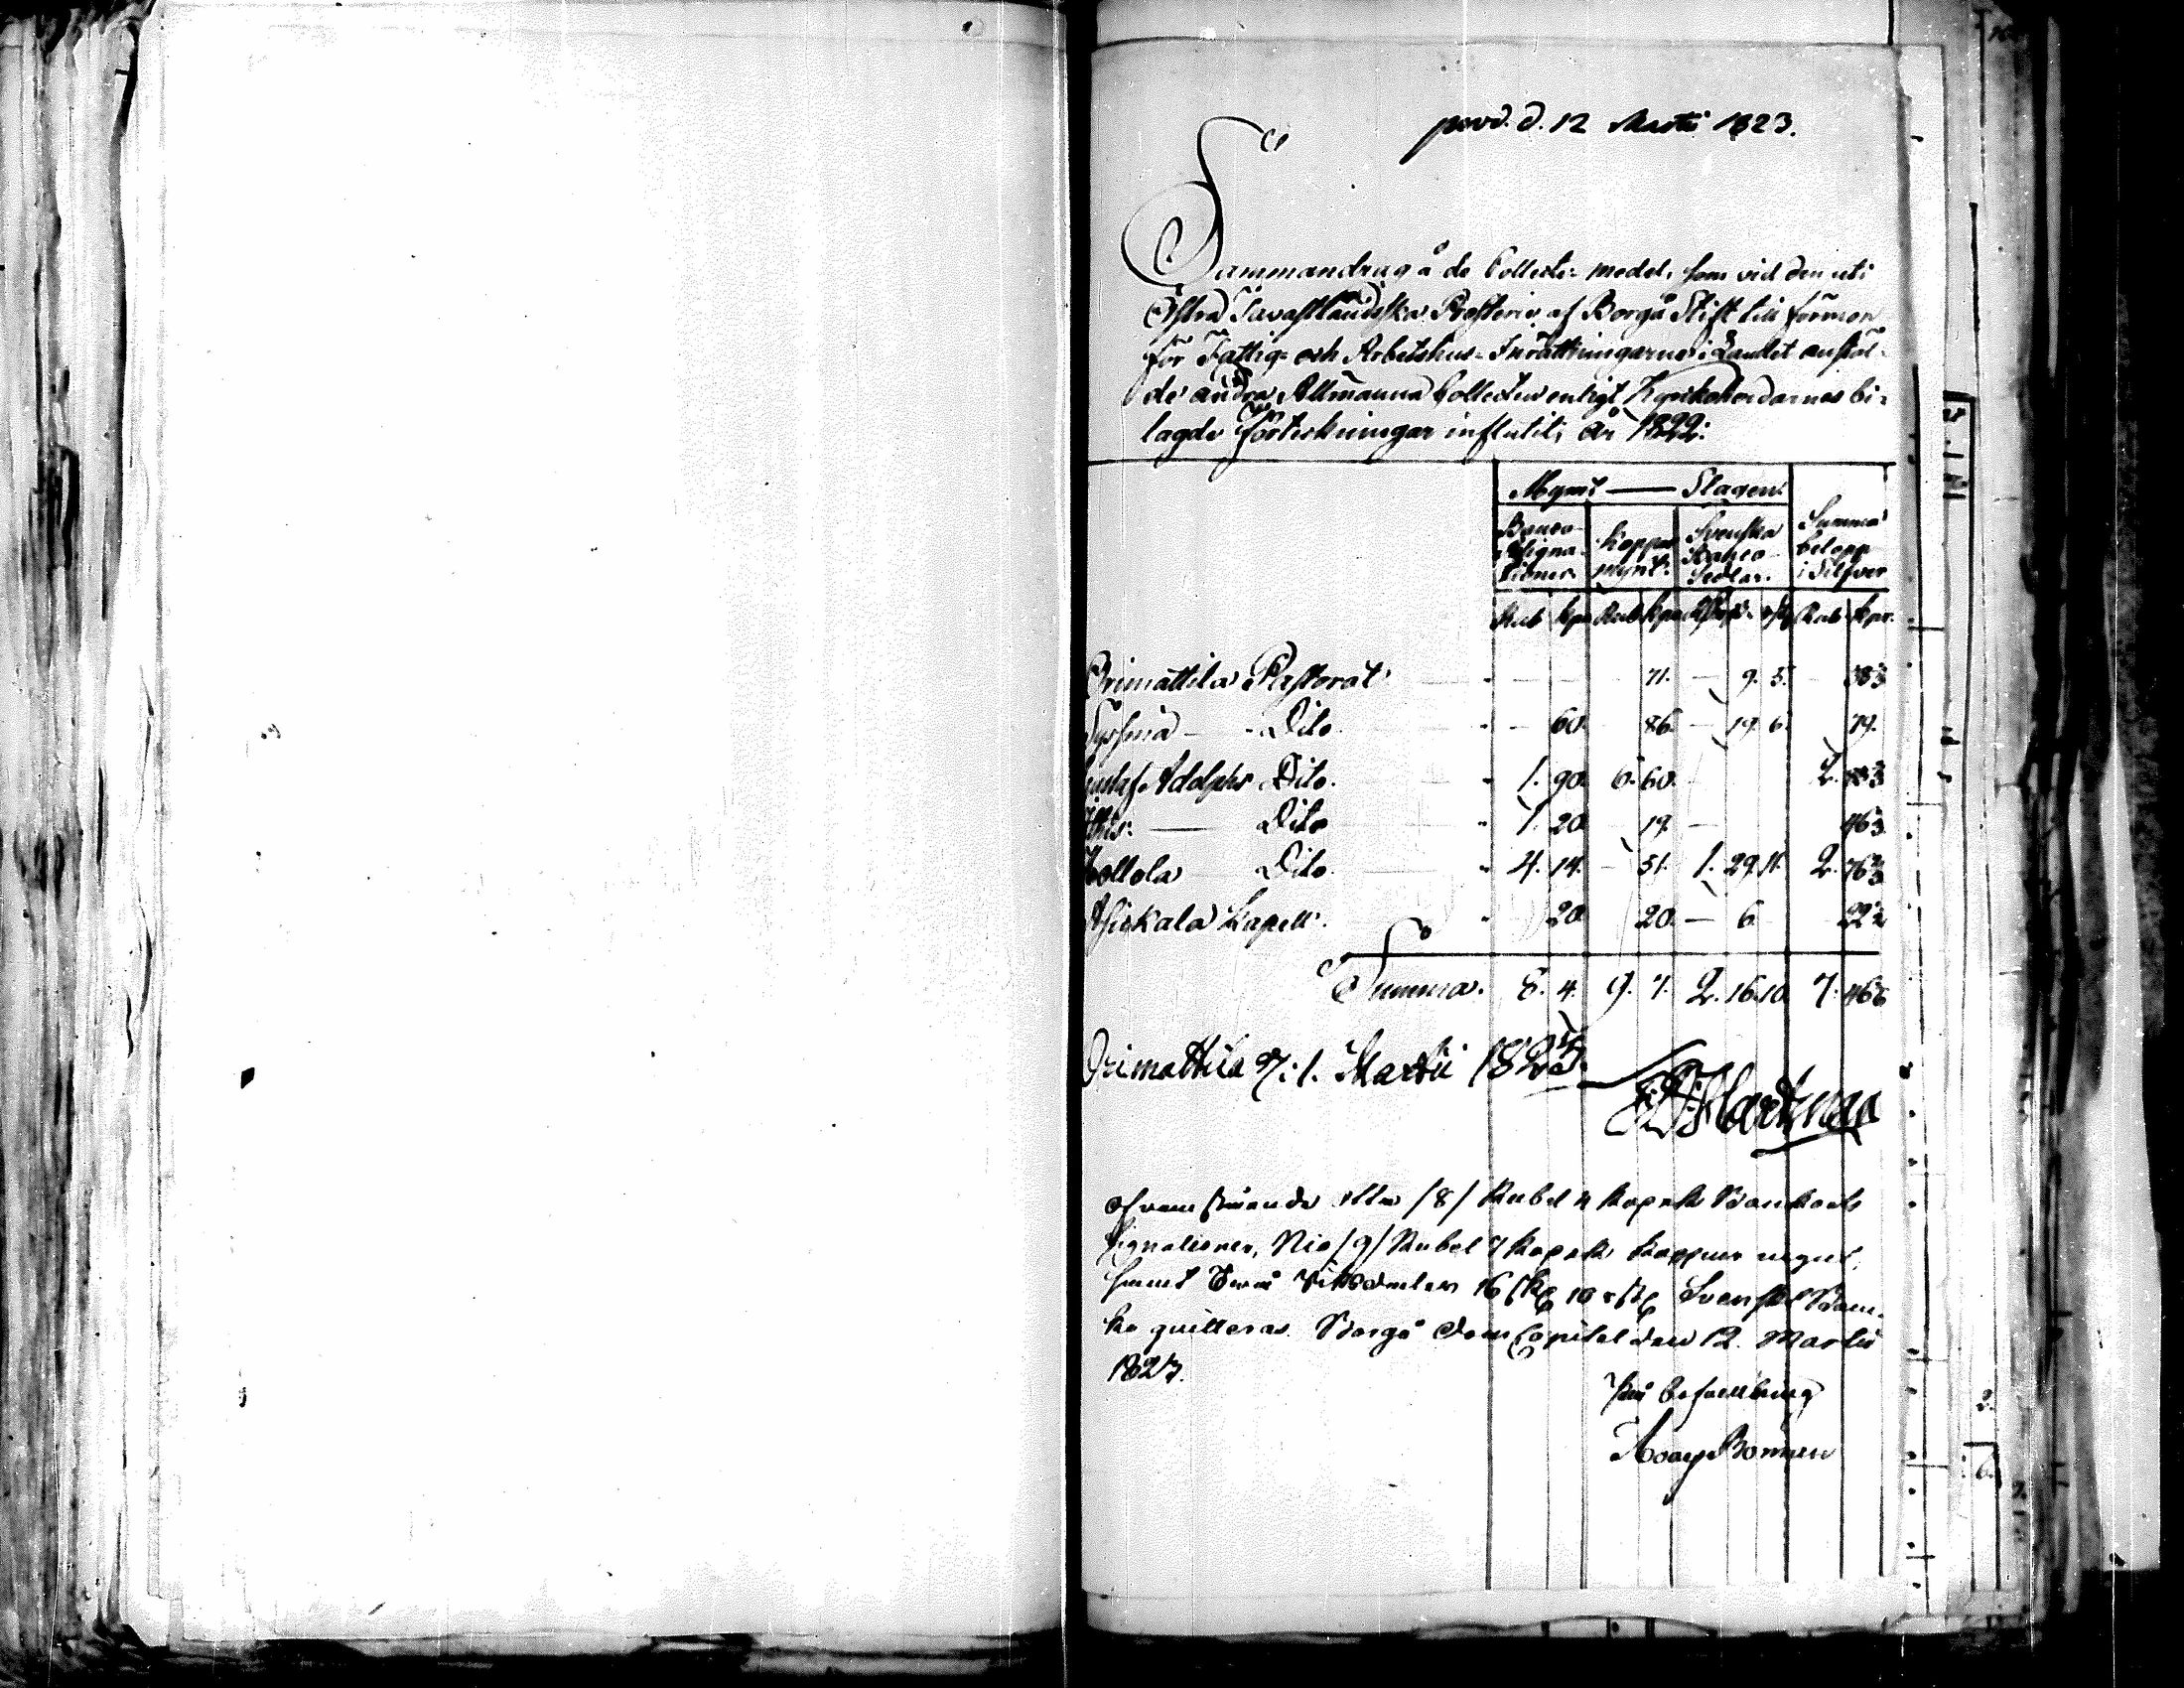 prod. d. 12 Martii 1823.
Sammandrag å de Collecte-medel, som vid den uti
Östra Tavastländska Prosteriet af Borgå Stift till förmon
för Fattig- och Arbetshus-Inrättningarne i Landet anstäl-
de andra Allmänna Collecten enligt Kyrkoherdarnes bi-
lagde Förteckningar influtit, år 1822:
Mynt — Slagen
Banco Assigna-tioner. Koppar mynt. Svenska Banco Sedlar. Summa belopp i Silfver
Rub Kpr Rub Kpr Rub Kpr.
Orimattila Pastorat 71. — 9. 5.
Sysmä — Dito 60. 86. — 19. 6. 79.
Gustaf Adolphs Dito. 1. 90. 6. 60. 2.
Dito 1. 20 19. —
Hollola Dito 4. 14. — 51. 1. 29. 11. 2. 76
Asickala Kapell. 20 20. — 6. 22
Summa. 8. 4. 9. 7. 2. 16. 10 7. 46
Orimattila d. 1. Martii 1823.
Hartman
Åtta /8/ Rubel 4 Kopek Banko As-
signationer, Nio /9/ Rubel 7 Kopek Koppar mynt,
samt Två Riksdaler 16 sk 10 rst Svenskt Ban-
ko quitteras. Borgå Dom Capitel den 12. Martii
1823.
På befallning